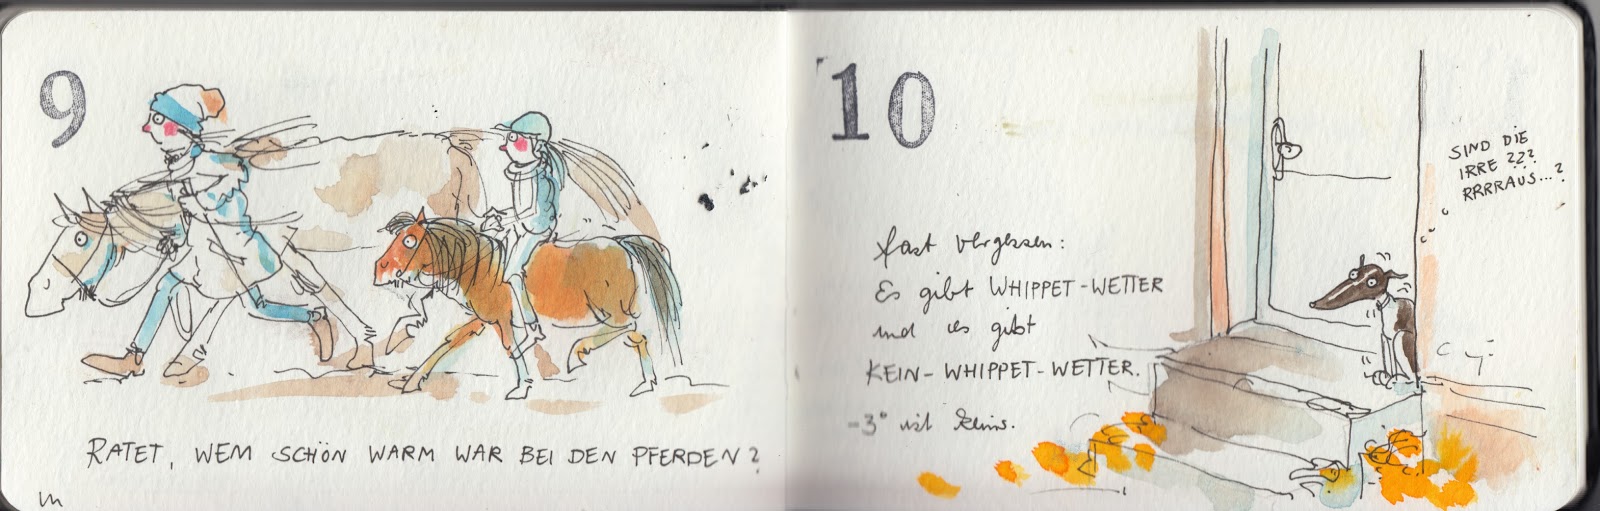 9
RATET, WEM SCHÖN WARM WAR BEI DEN PFERDEN?
10
fast vergessen:
Es gibt WHIPPET-WETTER
und es gibt
KEIN-WHIPPET-WETTER.
-3° ist keins.
SIND DIE
IRRE ???
RRRRAUS...?